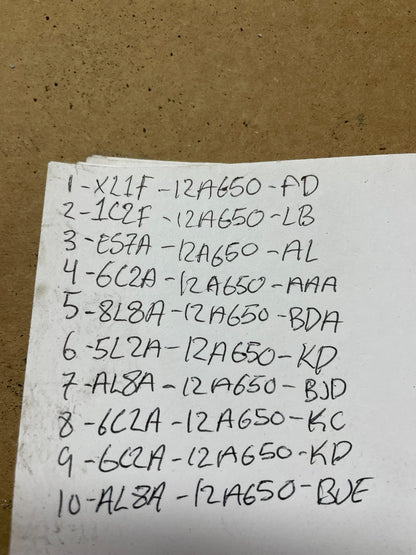 1-XL1F-12A650-AD
2-1C2F-12A650-LB
3-E57A-12A650-AL
4-6C2A-12A650-AAA
5-8L8A-12A650-BDA
6-5L2A-12A650-KD
7-AL8A-12A650-BJD
8-6C2A-12A650-KC
9-6C2A-12A650-KD
10-AL8A-12A650-BUE